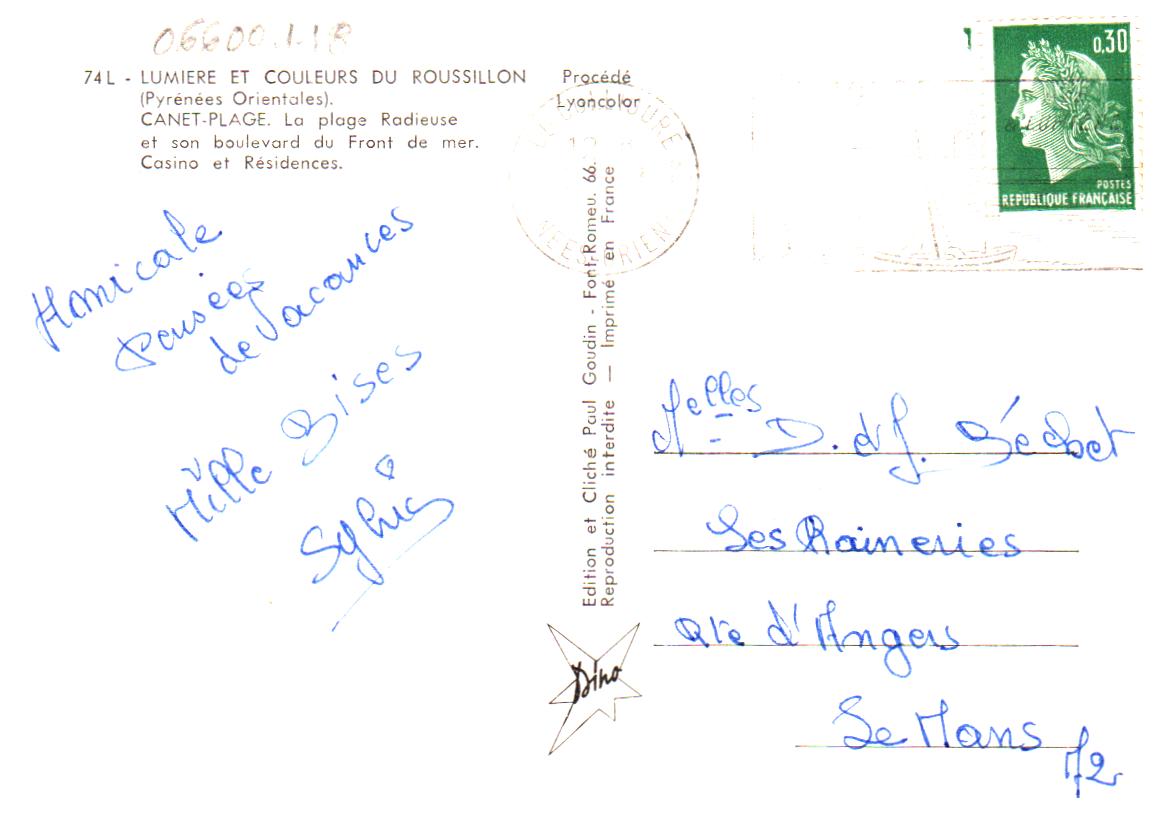 06600.1.18
74L - LUMIERE ET COULEURS DU ROUSSILLON
(Pyrénées Orientales).
CANET-PLAGE. La plage Radieuse
et son boulevard du Front de mer.
Casino et Résidences.
Procédé
Lyoncolor
0,30
POSTES
REPUBLIQUE FRANÇAISE
Amicale
Pensées
de Vacances
Mille Bises
Sylvie
Edition et Cliché Paul Goudin - Font-Romeu. 66.
Reproduction interdite — Imprimé en France
Dino
Melles D. et J. Béchet
Les Raineries
Rte d'Angers
Le Mans
72